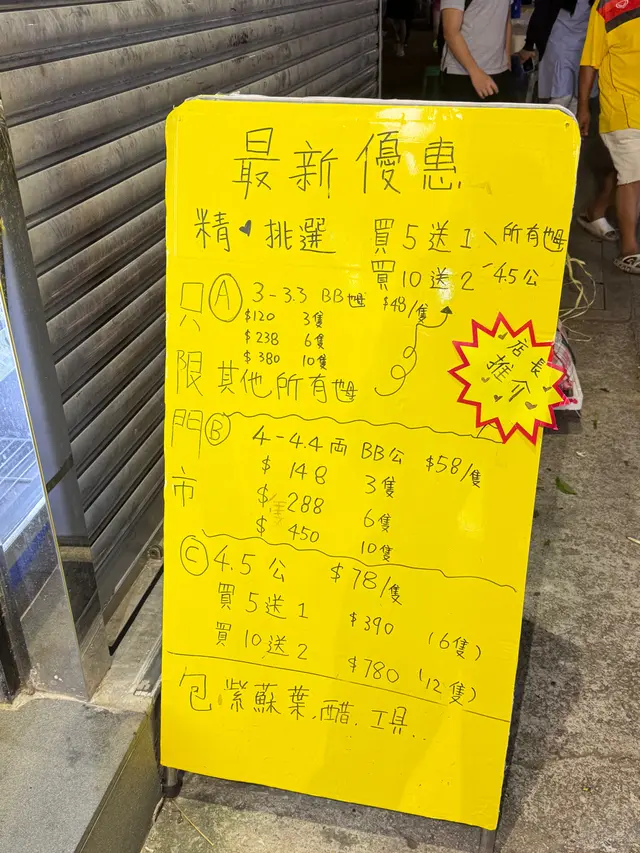 最新優惠
精♥挑選
買5送1、所有乸
買10送2 4.5公
只限門市
Ⓐ 3-3.3 BB乸 $48/隻
$120 3隻
$238 6隻
$380 10隻
其他所有乸
店長
推介
Ⓑ 4-4.4両 BB公 $58/隻
$148 3隻
$288 6隻
$450 10隻
Ⓒ 4.5公 $78/隻
買5送1 $390 (6隻)
買10送2 $780 (12隻)
包紫蘇葉.醋.工具..